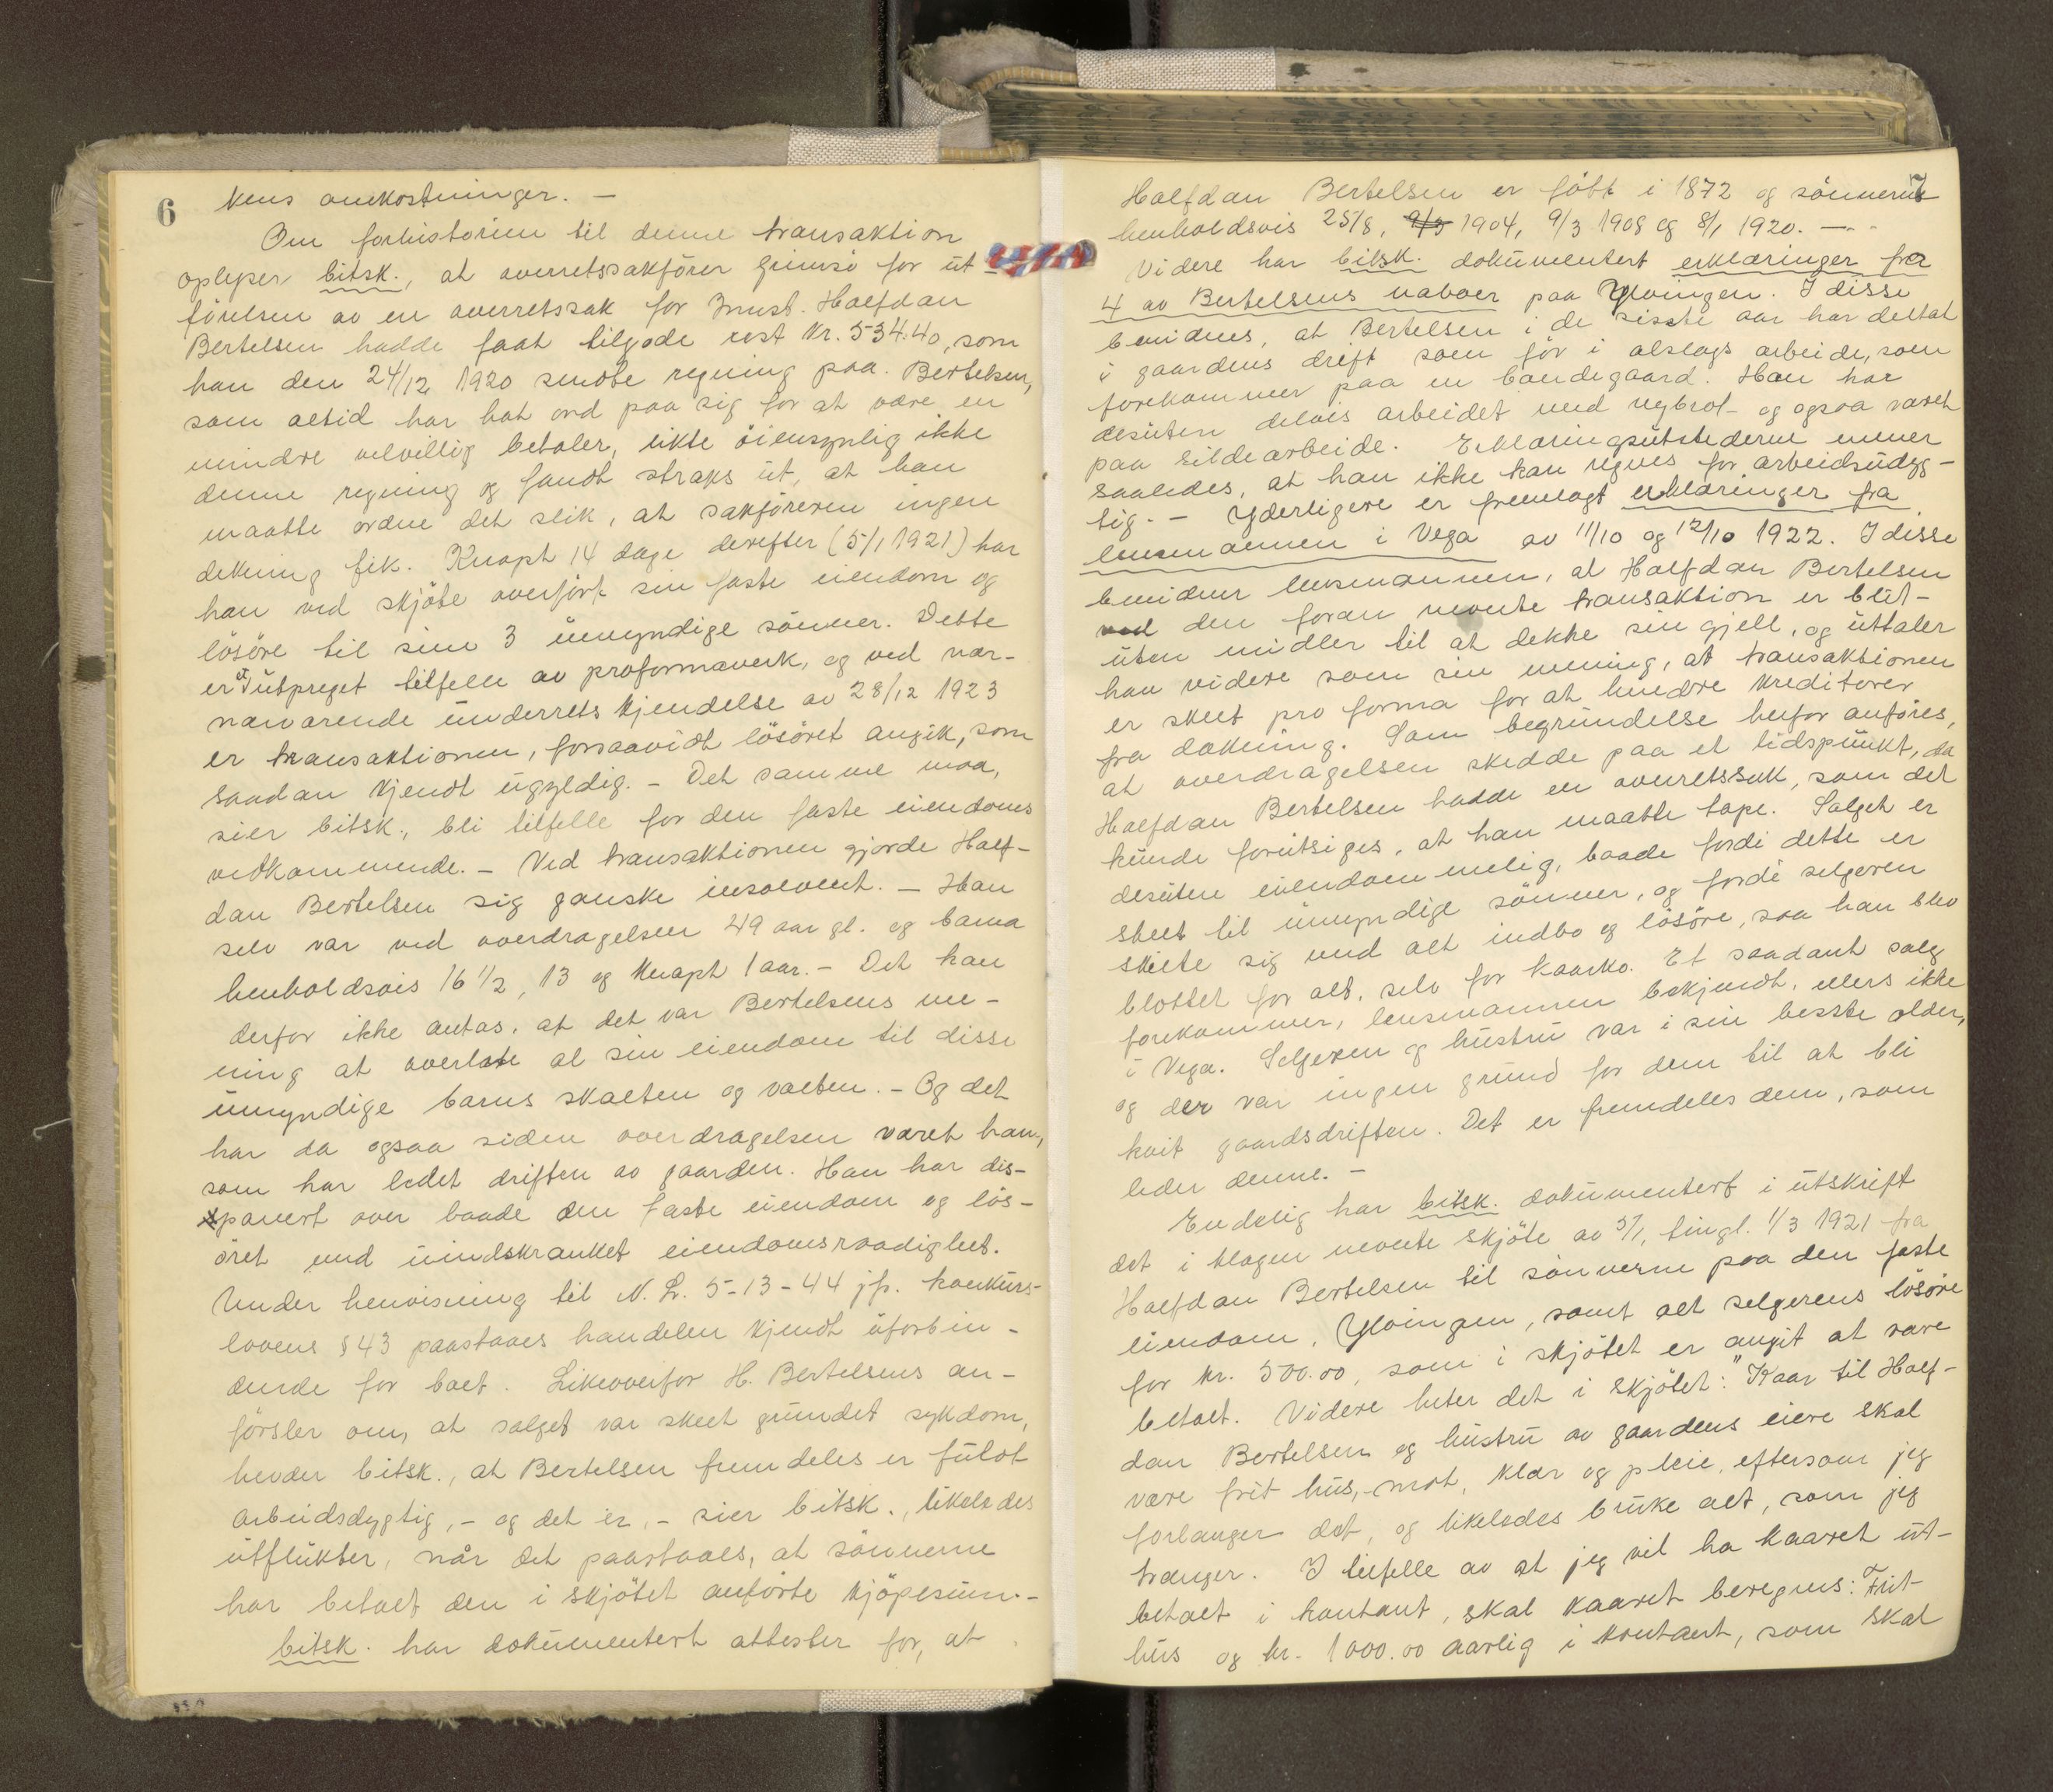 6
kens omkostninger. —
Om forhistorien til denne transaktion
oplyser citsk., at overretssakförer Grimsö for ut-
förelsen av en overretssak for Innst. Halfdan
Bertelsen hadde faat tilgode rest Kr. 534.40, som
han den 24/12 1920 sendte regning paa. Bertelsen,
som altid har hat ord paa sig for at være en
mindre velvillig betaler, likte öiensynlig ikke
denne regning og fandt straks ut, at han
maatte ordne det slik, at sakföreren ingen
dekning fik. Knapt 14 dage derefter (5/1 1921) har
han ved skjöte overfört sin faste eiendom og
lösöre til sine 3 umyndige sönner. Dette
er et utpreget tilfelle av proformaverk, og ved nær-
nærværende underrets kjendelse av 28/12 1923
er transaktionen, forsaavidt lösöret angik, som
saadan kjendt ugyldig. – Det samme maa,
sier citsk., bli tilfelle for den faste eiendoms
vedkommende. – Ved transaktionen gjorde Half-
dan Bertelsen sig ganske insolvent. – Han
selv var ved overdragelsen 49 aar gl. og barna
henholdsvis 16 1/2, 13 og knapt 1 aar. – Det kan
derfor ikke antas, at det var Bertelsens me-
ning at overlate al sin eiendom til disse
umyndige barns skalten og valten. – Og det
har da ogsaa siden overdragelsen været han,
som har ledet driften av gaarden. Han har dis-
ponert over baade den faste eiendom og lös-
öret med uindskrænket eiendomsraadighet.
Under henvisning til N. L. 5-13-44 jfr. konkurs-
lovens § 43 paastaaes handelen kjendt uforbin-
dende for boet. Likeoverfor H. Bertelsens an-
försler om, at salget var skeet grundet sykdom,
hevder citsk., at Bertelsen fremdeles er fuldt
arbeidsdygtig, – og det er, – sier citsk., likeledes
utflukter, når det paastaaes, at sönnerne
har betalt den i skjötet anförte kjöpesum. –
Citsk. har dokumentert attester for, at
7
Halfdan Bertelsen er född i 1872 og sönnerne
henholdsvis 25/8, 9/3 1904, 9/3 1908 og 8/1 1920. —
Videre har citsk. dokumentert erklæringer fra
4 av Bertelsens naboer paa Ylvingen. I disse
bevidnes, at Bertelsen i de siste aar har deltat
i gaardens drift som för i alslags arbeide, som
forekommer paa en bondegaard. Han har
desuten delvis arbeidet med nybrot- og ogsaa været
paa sildearbeide. Erklæringsutstederne mener
saaledes, at han ikke kan regnes for arbeidsudyg-
tig. – Yderligere er fremlagt erklæringer fra
lensmannen i Vega av 11/10 og 12/10 1922. I disse
bevidner lensmannen, at Halfdan Bertelsen
ved den foran nevnte transaktion er blit-
uten midler til at dekke sin gjeld, og uttaler
han videre som sin mening, at transaktionen
er skeet pro forma for at hindre kreditorer
fra dekning. Som begrundelse herfor anföres,
at overdragelsen skedde paa et tidspunkt, da
Halfdan Bertelsen hadde en overretssak, som det
kunde forutsiges, at han maatte tape. Salget er
desuten eiendommelig, baade fordi dette er
skeet til umyndige sönner, og fordi selgeren
skilte sig med alt indbo og lösöre, saa han blev
blottet for alt, selv for kaarko. Et saadant salg
forekommer, lensmannen bekjendt, ellers ikke
i Vega. Selgeren og hustru var i sin beste alder,
og der var ingen grund for dem til at bli
kvit gaardsdriften. Det er fremdeles dem, som
leder denne. –
Endelig har citsk. dokumentert i utskrift
det i klagen nevnte skjöte av 5/1, tingl. 1/3 1921 fra
Halfdan Bertelsen til sönnerne paa den faste
eiendom, Ylvingen, samt alt selgerens lösöre
for kr. 500.00, som i skjötet er angit at være
betalt. Videre heter det i skjötet: "Kaar til Half-
dan Bertelsen og hustru av gaardens eiere skal
være frit hus, mat, klær og pleie, eftersom jeg
forlanger det, og likeledes bruke alt, som jeg
trænger. I tilfelle av at jeg vil ha kaaret ut-
betalt i kontant, skal kaaret beregnes: Frit-
hus og kr. 1000.00 aarlig i kontant, som skal